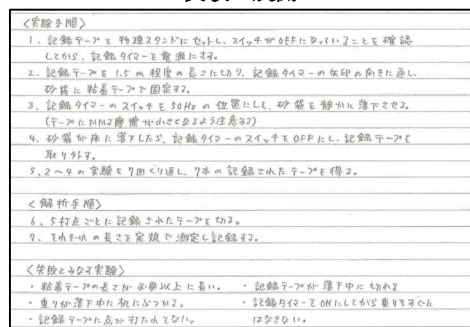 <実験手順>
1. 記録テープを物理スタンドにセットし、スイッチがOFFになっていることを確認
してから、記録タイマーを電源にさす。
2. 記録テープを1.5m程度の長さに切り、記録タイマーの矢印の向きに通し
砂袋に粘着テープで固定する。
3. 記録タイマーのスイッチを50Hzの位置にして、砂袋を静かに落下させる。
(テープにかかる摩擦が小さくなるよう注意する)
4. 砂袋が床に落下したら、記録タイマーのスイッチをOFFにし、記録テープを
取り外す。
5. 2~4の実験を7回くり返し、7本の記録されたテープを得る。
<解析手順>
6. 5打点ごとに記録されたテープを切る。
7. それぞれの長さを定規で測定し記録する。
<失敗とみなす実験>
・粘着テープの長さが必要以上に長い。 ・記録テープが落下中に切れる
・重りが落下中に机にぶつかる。 ・記録タイマーをONにしてから重りをすぐに
・記録テープに点が打たれてない。 はなさない。